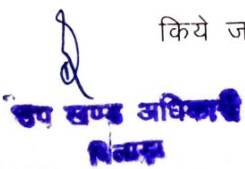 किये ज
उप खण्ड अधिकारी
बिलाड़ा